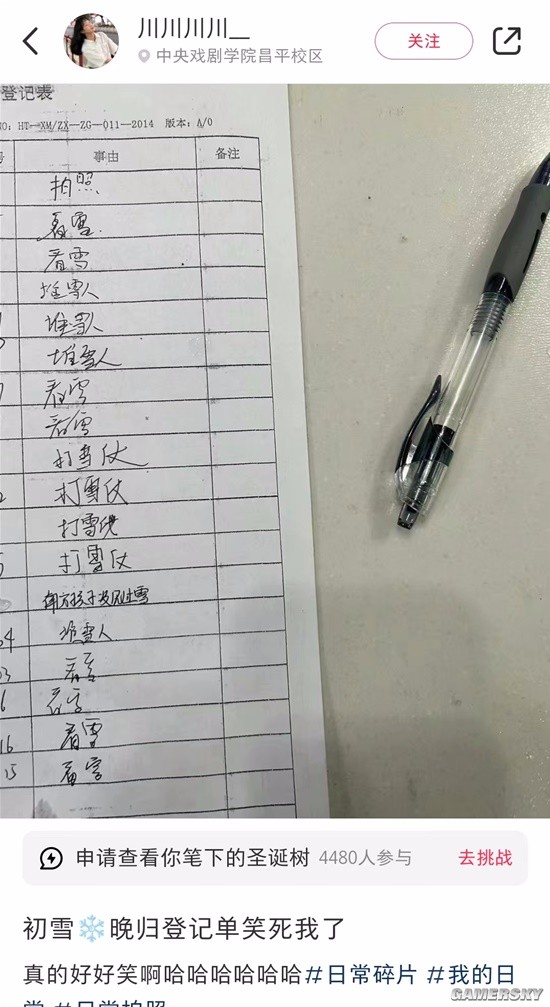 川川川川__
中央戏剧学院昌平校区
关注
登记表
NO: HT-XM/ZX-ZG-011-2014 版本: A/0
号 事由 备注
拍照
看雪
看雪
堆雪人
堆雪人
堆雪人
看雪
看雪
打雪仗
打雪仗
打雪仗
打雪仗
南方孩子没见过雪
堆雪人
看雪
看雪
16 看雪
15 看雪
申请查看你笔下的圣诞树 4480人参与 去挑战
初雪❄️晚归登记单笑死我了
真的好好笑啊哈哈哈哈哈哈哈#日常碎片 #我的日
常 #日常拍照
GAMERSKY